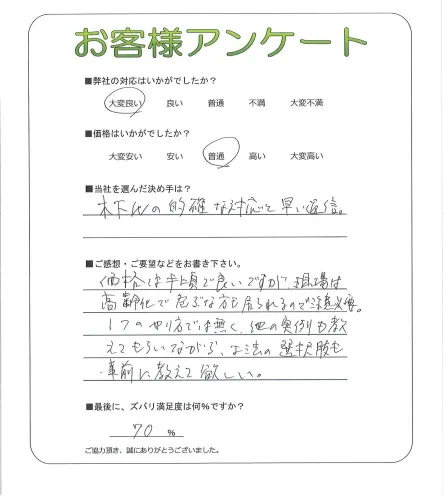 お客様アンケート
■弊社の対応はいかがでしたか？
大変良い 良い 普通 不満 大変不満
■価格はいかがでしたか？
大変安い 安い 普通 高い 大変高い
■当社を選んだ決め手は？
木下氏の的確な対応と早い返信。
■ご感想・ご要望などをお書き下さい。
価格は手頃で良いですが、現場は
高齢化で危ぶな方も居られるので注意必要。
1つのやり方では無く、他の実例も教
えてもらいながら、工法の選択肢も
事前に教えて欲しい。
■最後に、ズバリ満足度は何%ですか？
70 %
ご協力頂き、誠にありがとうございました。